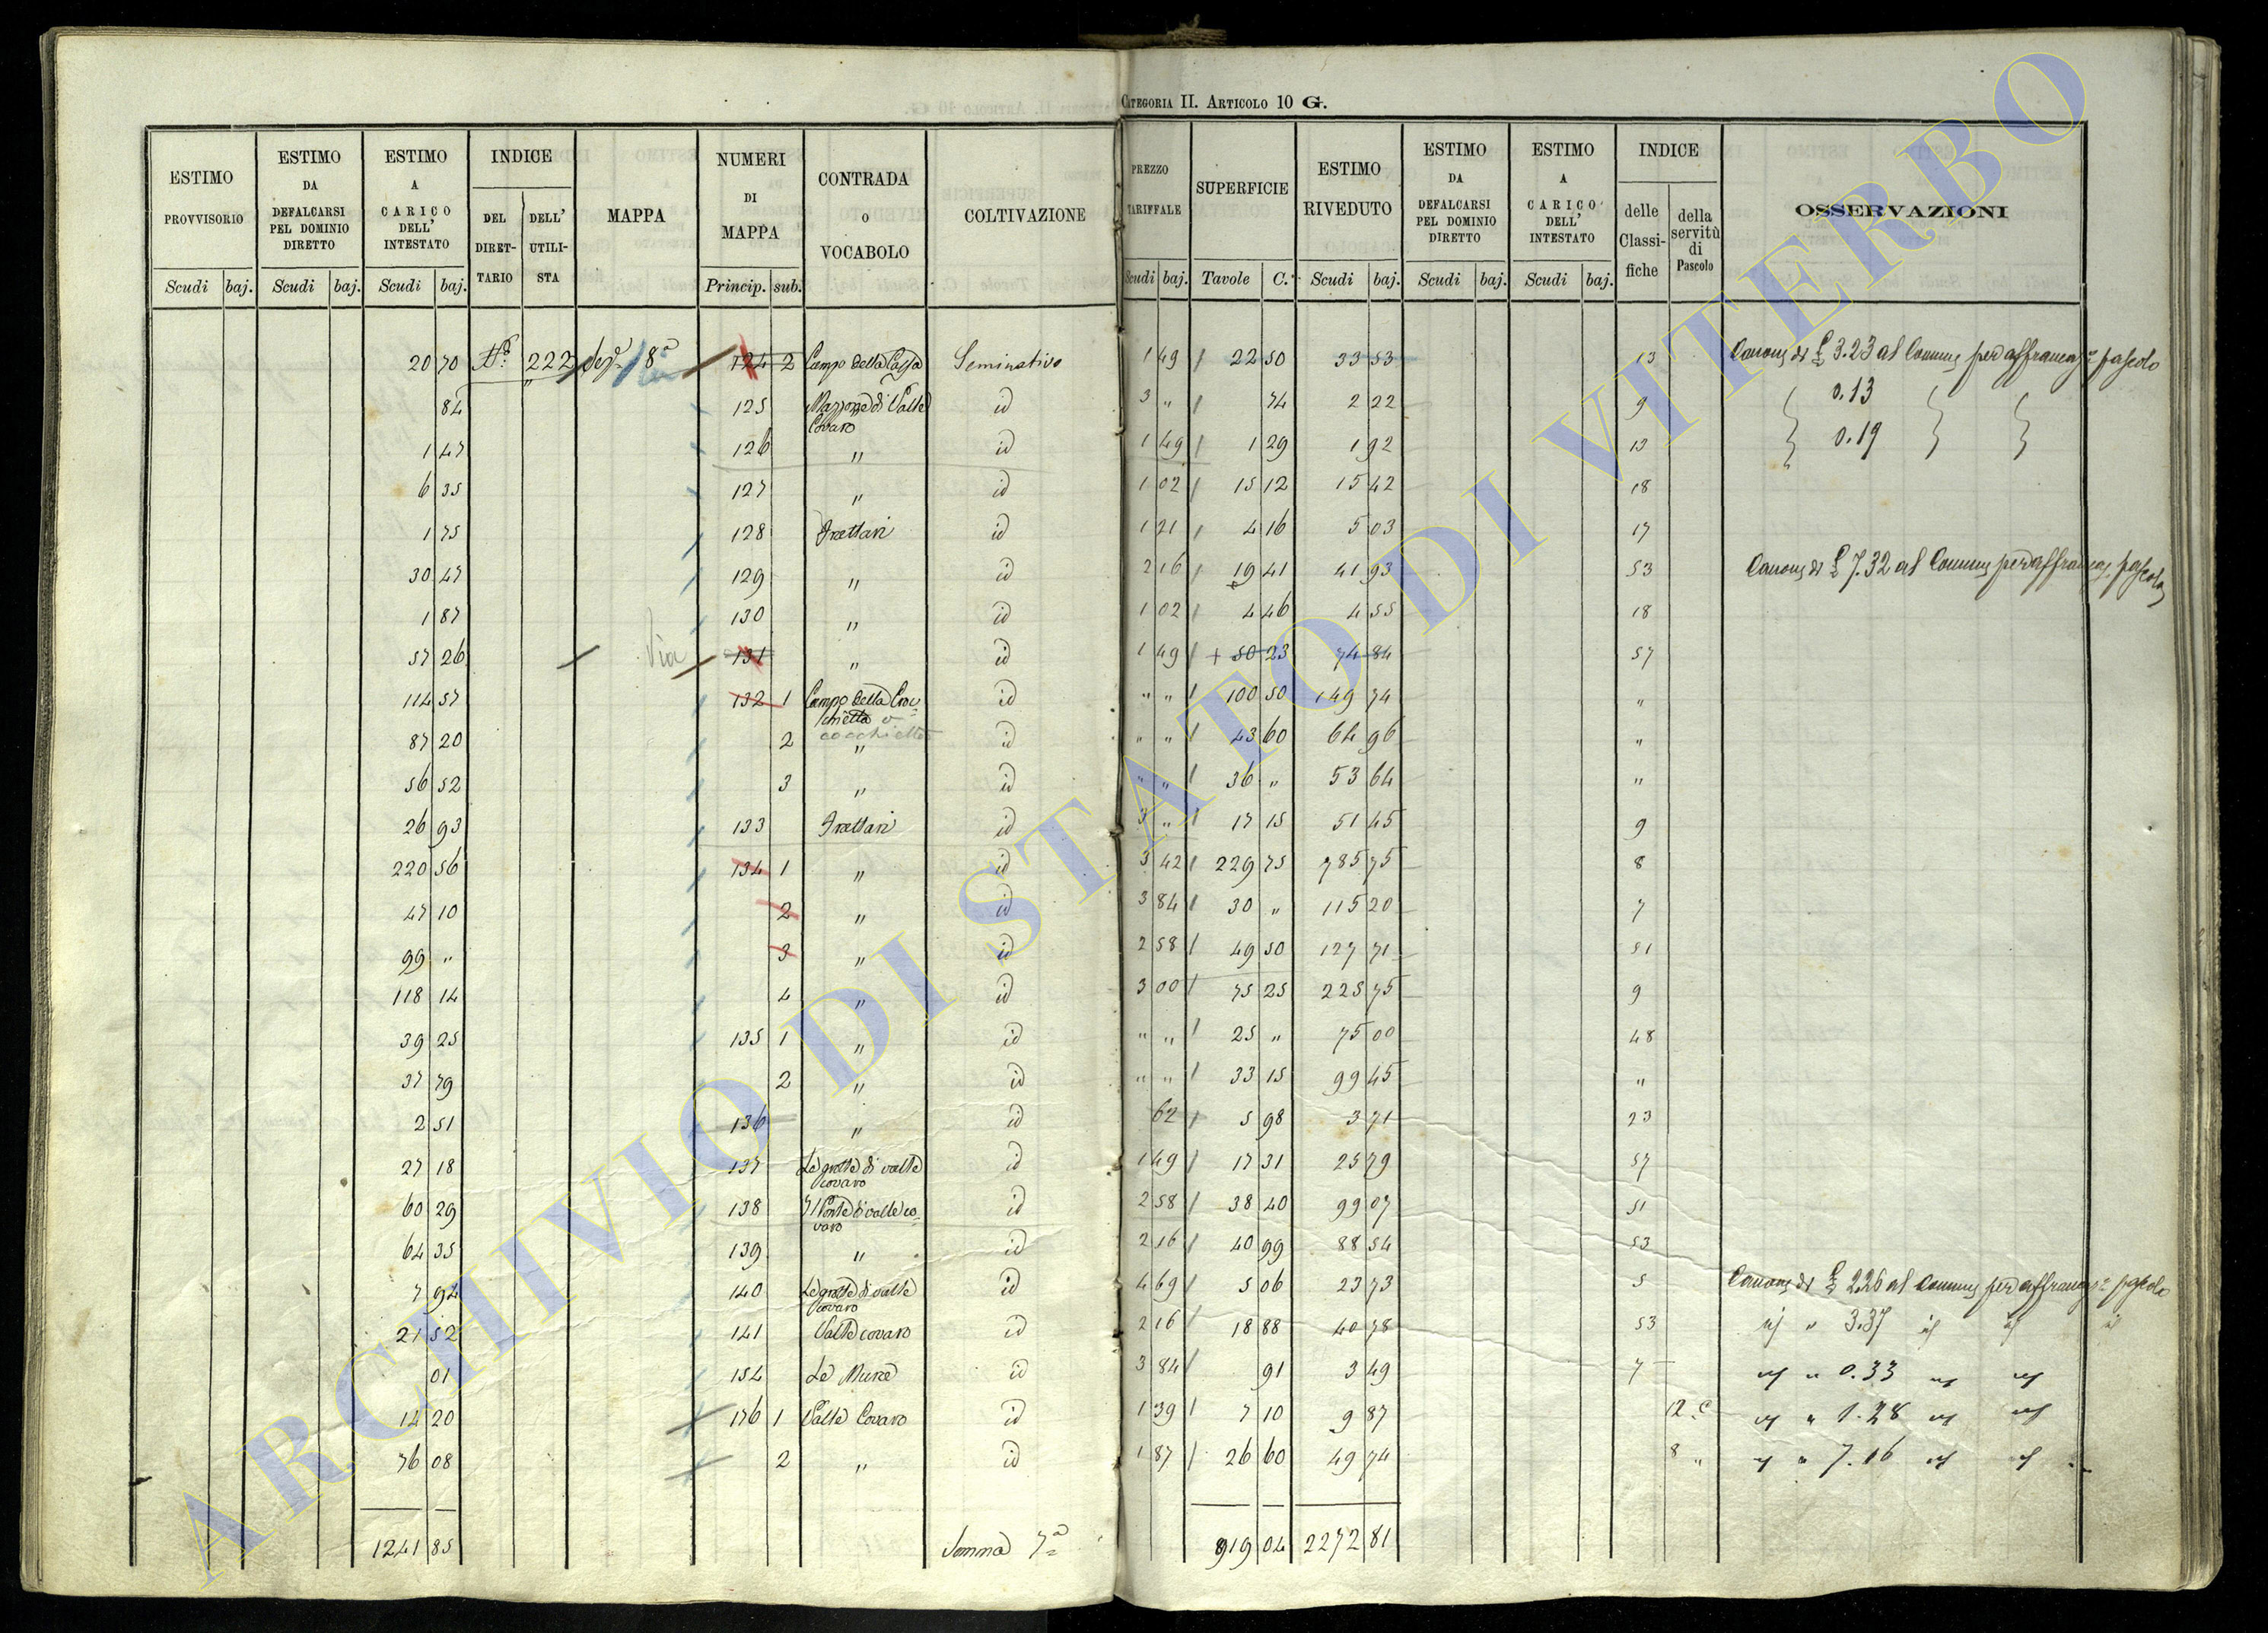 CATEGORIA II. ARTICOLO 10 G.
ESTIMO PROVVISORIO Scudi baj.
ESTIMO DA DEFALCARSI PEL DOMINIO DIRETTO Scudi baj.
ESTIMO A CARICO DELL' INTESTATO Scudi baj.
INDICE DEL DIRETTARIO DELL' UTILISTA
MAPPA
NUMERI DI MAPPA Princip. sub.
CONTRADA O VOCABOLO
COLTIVAZIONE
PREZZO TARIFFALE Scudi baj.
SUPERFICIE Tavole C.
ESTIMO RIVEDUTO Scudi baj.
ESTIMO DA DEFALCARSI PEL DOMINIO DIRETTO Scudi baj.
ESTIMO A CARICO DELL' INTESTATO Scudi baj.
INDICE delle Classifiche della servitù di Pascolo
OSSERVAZIONI
20 70 222 8ª 124 2 Campo della Seminativo 1 49 22 50 33 53 13 3.23 al Comune per pascolo
84 125 di Valle Covaro id 3 " 74 2 22 9 0.13
1 47 126 " id 1 49 1 29 1 92 13 0.19
6 35 127 " id 1 02 15 12 15 42 18
1 75 128 Frattari id 1 21 4 16 5 03 17
30 47 129 " id 2 16 19 41 41 93 53 7.32 al Comune per pascolo
1 87 130 " id 1 02 4 46 4 55 18
57 26 Via 131 " id 1 49 + 50 23 74 84 57
114 57 132 1 Campo della Crocchietta o cocchietto id " " 100 50 149 74 "
87 20 2 " id " " 43 60 64 96 "
56 52 3 " id " " 36 " 53 64 "
26 93 133 Frattari id 3 " 17 15 51 45 9
220 56 134 1 " id 3 42 229 75 785 75 8
47 10 2 " id 3 84 30 " 115 20 7
99 " 3 " id 2 58 49 50 127 71 51
118 14 4 " id 3 00 75 25 225 75 9
39 25 135 1 " id " " 25 " 75 00 48
37 79 2 " id " " 33 15 99 45 "
2 51 136 " id 62 5 98 3 71 23
27 18 137 Le grotte di valle covaro id 1 49 17 31 25 79 57
60 29 138 Il Ponte di valle covaro id 2 58 38 40 99 07 51
64 35 139 " id 2 16 40 99 88 54 53
7 94 140 Le grotte di valle covaro id 4 69 5 06 23 73 5 2.26 al Comune per pascolo
21 52 141 Valle covaro id 2 16 18 88 40 78 53 id " 3.37 id id id
01 154 Le Mura id 3 84 91 3 49 7 id " 0.33 id id
14 20 176 1 Valle Covaro id 1 39 7 10 9 87 12 C id " 1.28 id id
76 08 2 " id 1 87 26 60 49 74 8 " id " 7.16 id id
1241 85 Somma 7ª 919 04 2272 81
ARCHIVIO DI STATO DI VITERBO